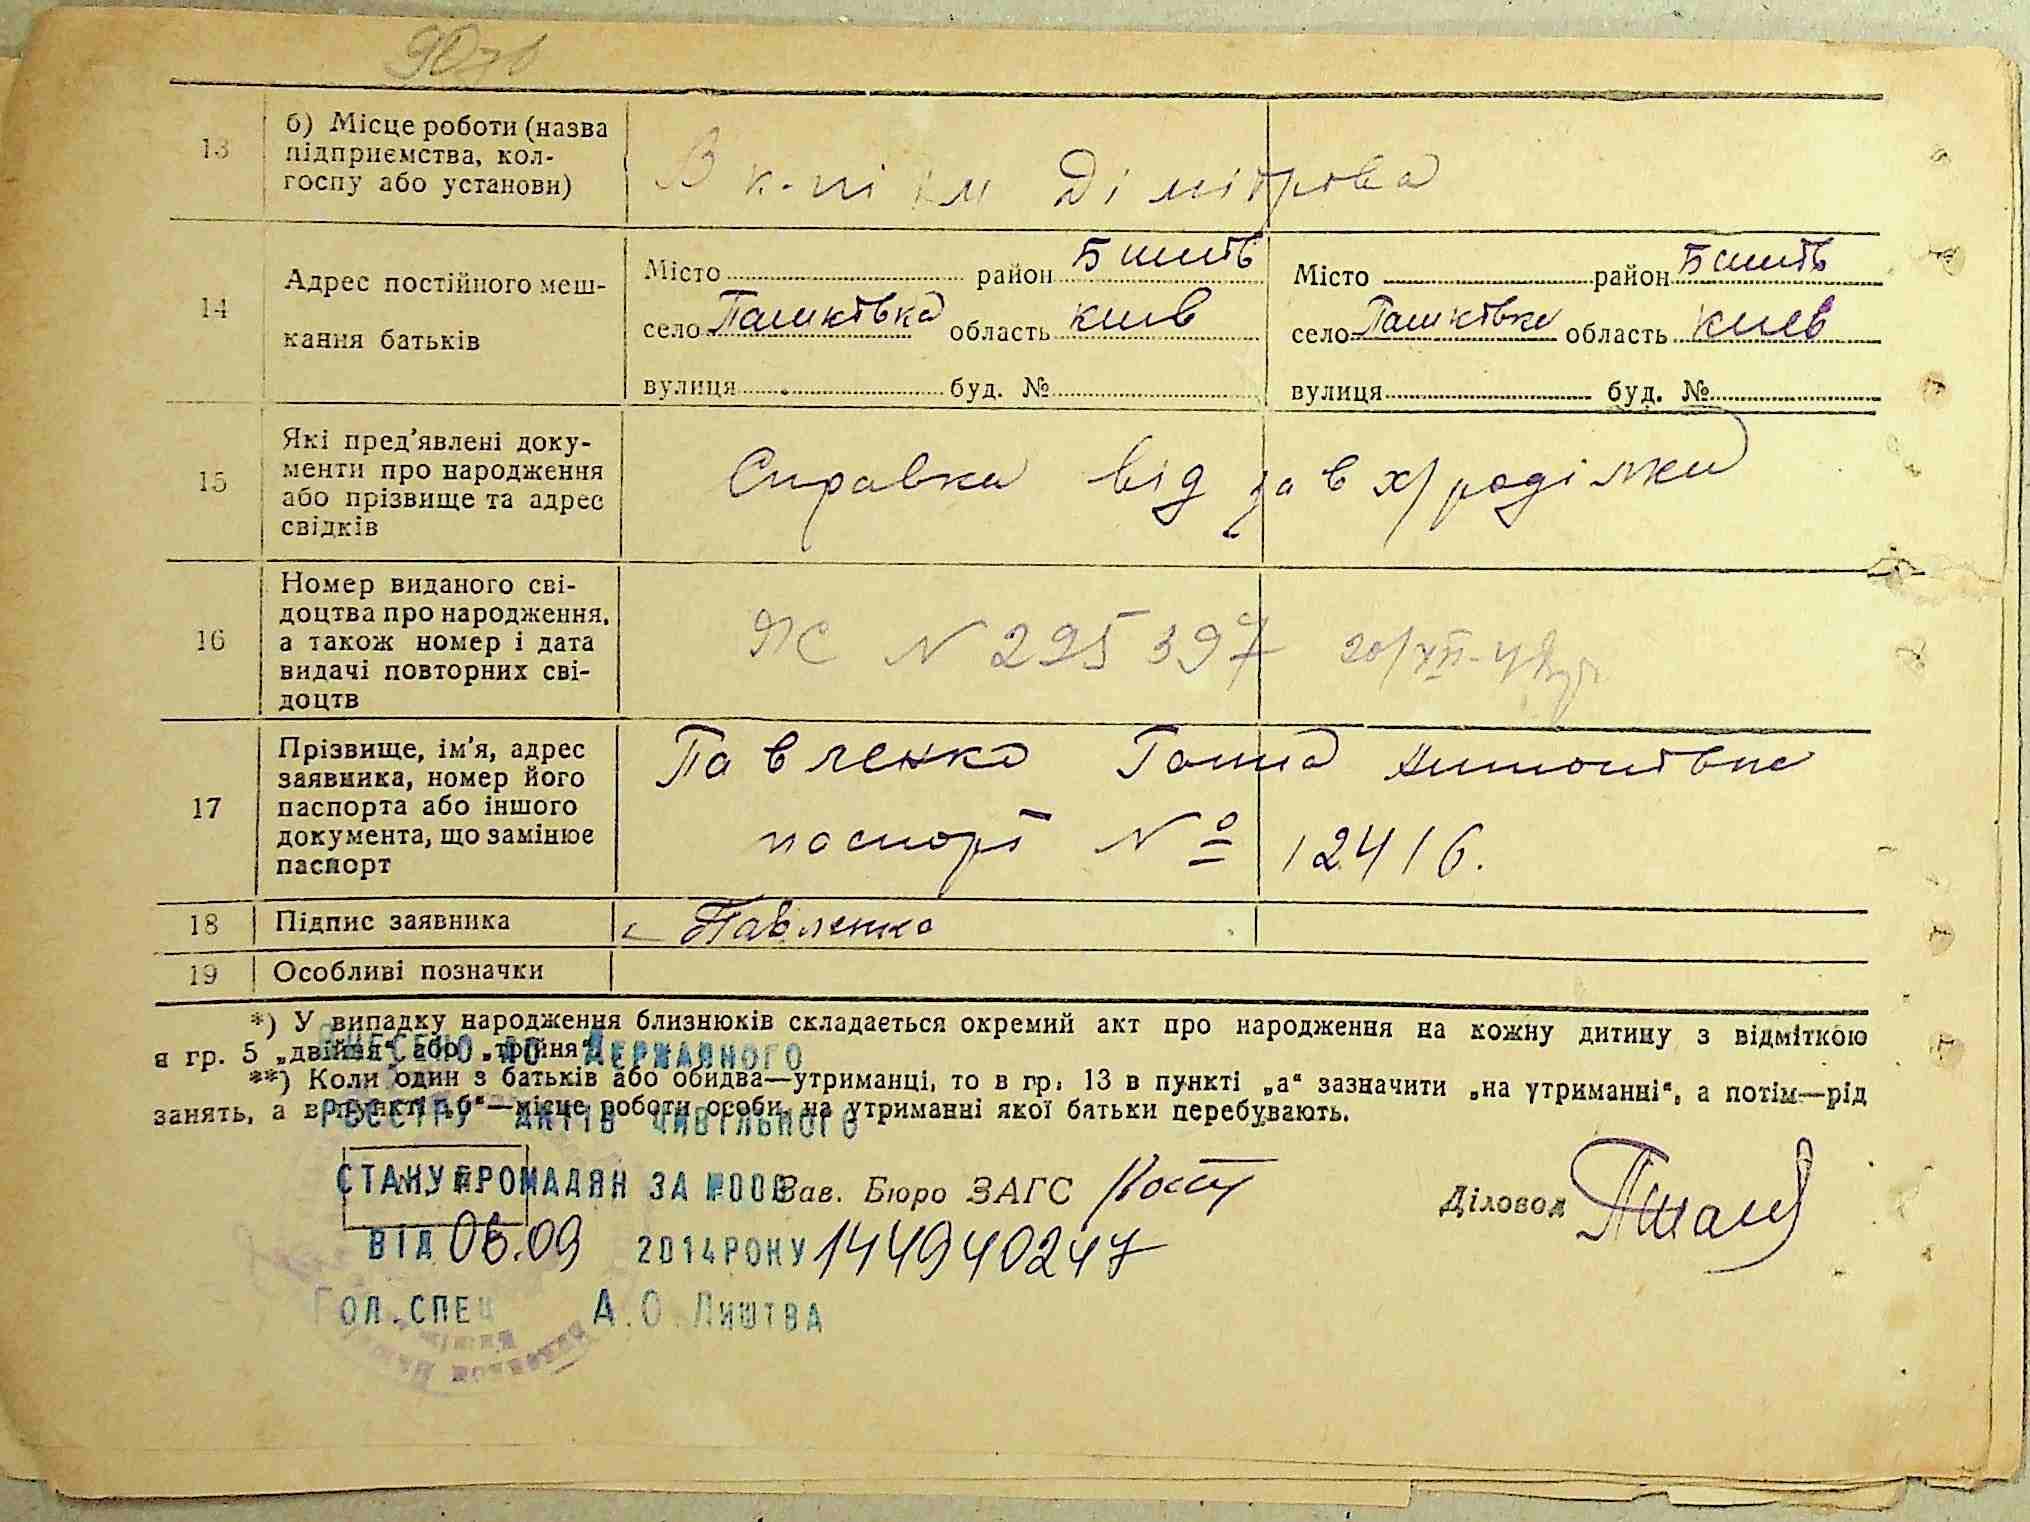 13
б) Місце роботи (назва
підприємства, кол-
госпу або установи)
В к-пі ім Дімітрова
14
Адрес постійного меш-
кання батьків
Місто район
село Пашківка область Киів
вулиця буд. №
Місто район
село Пашківка область Киев
вулиця буд. №
15
Які пред'явлені доку-
менти про народження
або прізвище та адрес
свідків
Справка від зав х/роділки
16
Номер виданого сві-
доцтва про народження,
а також номер і дата
видачі повторних сві-
доцтв
ЯС N 225397 20/XII-
17
Прізвище, ім'я, адрес
заявника, номер його
паспорта або іншого
документа, що замінює
паспорт
Павленко Ганна
паспорт № 12416.
18
Підпис заявника
Павленко
19
Особливі позначки
*) У випадку народження близнюків складається окремий акт про народження на кожну дитину з відміткою
в гр. 5 „двійня“ або „трійня“.
**) Коли один з батьків або обидва—утриманці, то в гр. 13 в пункті „а“ зазначити „на утриманні“, а потім—рід
занять, а в пункті „б“—місце роботи особи, на утриманні якої батьки перебувають.
ВНЕСЕНО ДО ДЕРЖАВНОГО
РЕЄСТРУ АКТІВ ЦИВІЛЬНОГО
СТАНУ ГРОМАДЯН ЗА №000
Зав. Бюро ЗАГС
Діловод
ВІД 06.09 2014 РОКУ 144940247
ГОЛ. СПЕЦ А.О. ЛИШТВА